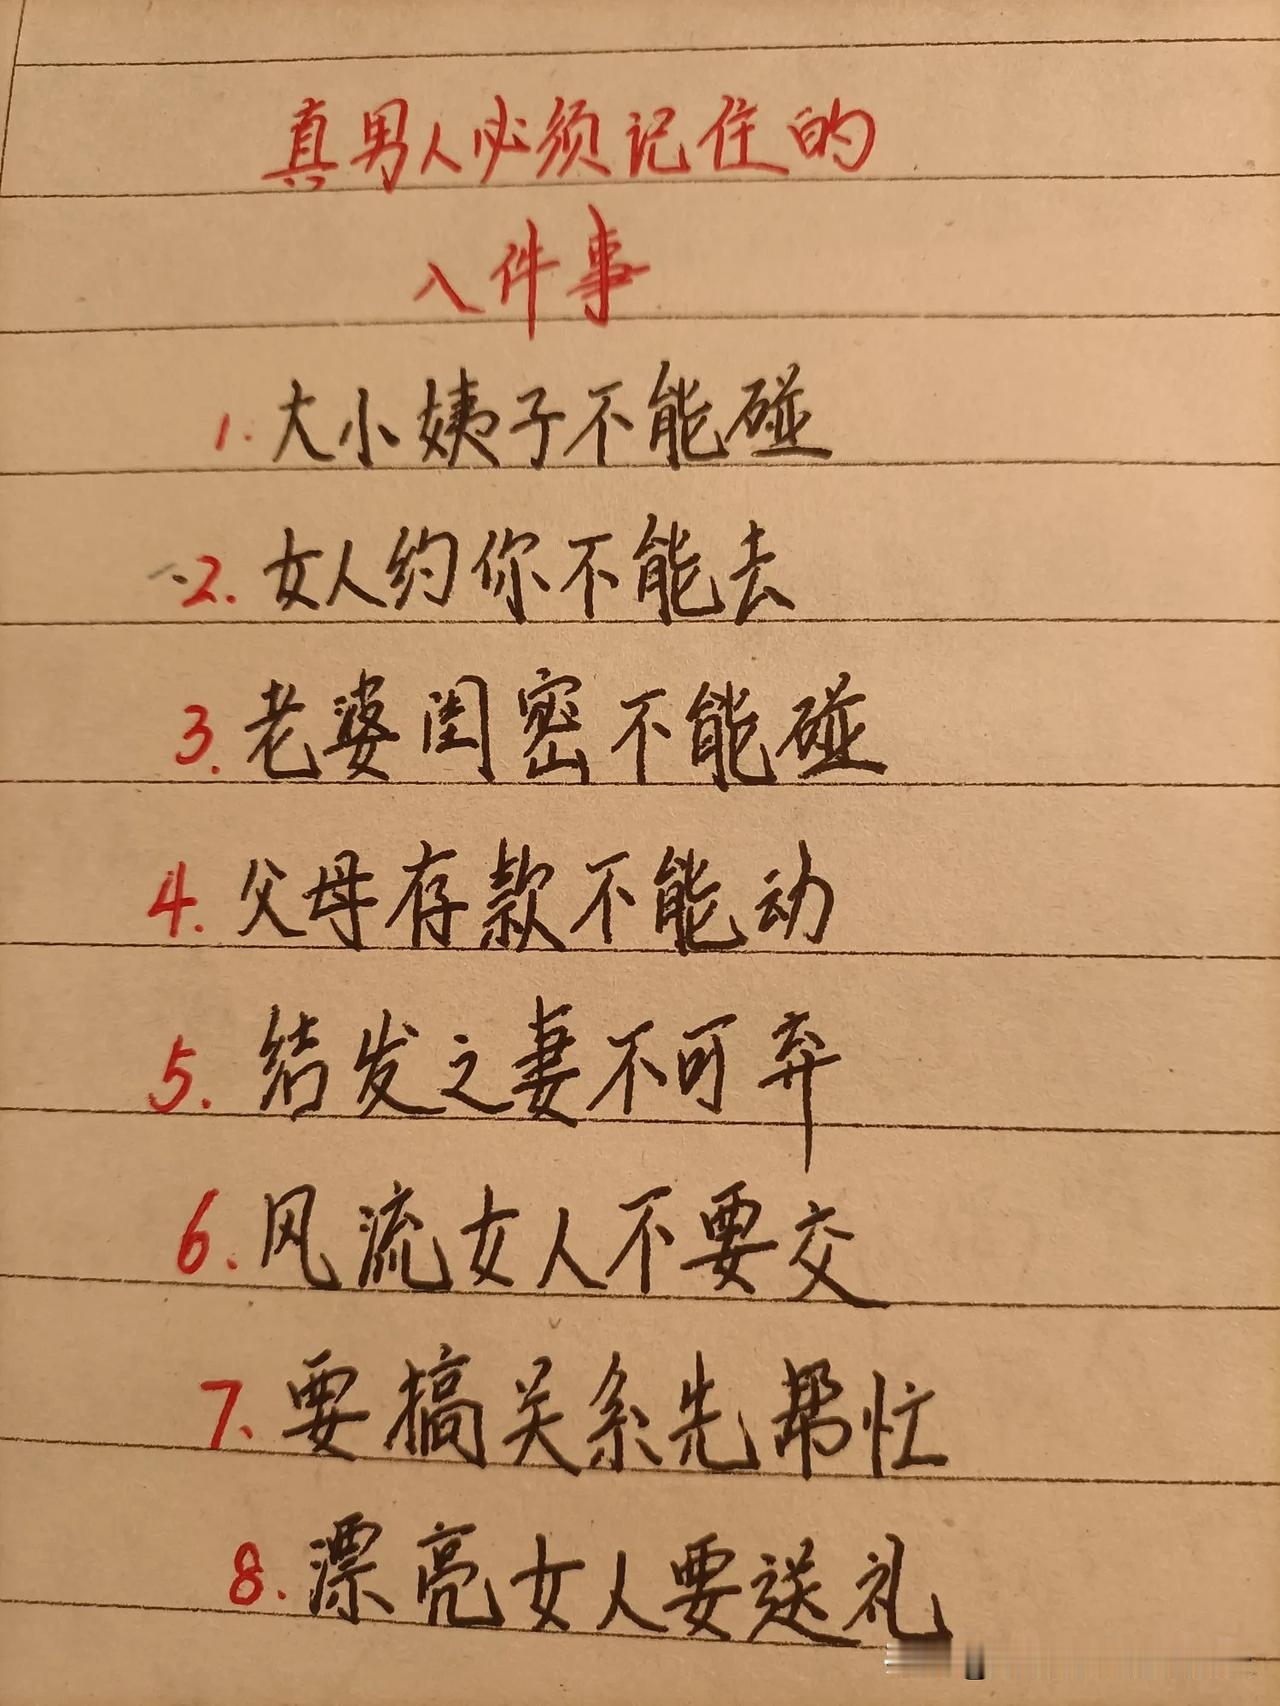 真男人必须记住的
八件事
1. 大小姨子不能碰
2. 女人约你不能去
3. 老婆闺密不能碰
4. 父母存款不能动
5. 结发之妻不可弃
6. 风流女人不要交
7. 要搞关系先帮忙
8. 漂亮女人要送礼